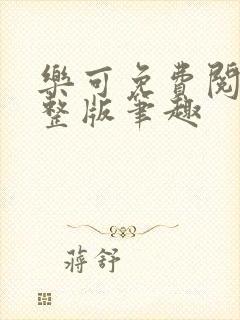 樂可免費閱
整版筆趣
蔣舒